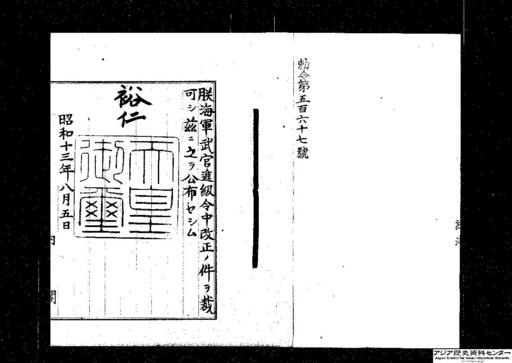 勅令第五百六十七號
朕海軍武官進級令中改正ノ件ヲ裁
可シ茲ニ之ヲ公布セシム
裕仁
天皇
御璽
昭和十三年八月五日
内
閣
アジア歴史資料センター
Japan Center for Asian Historical Records